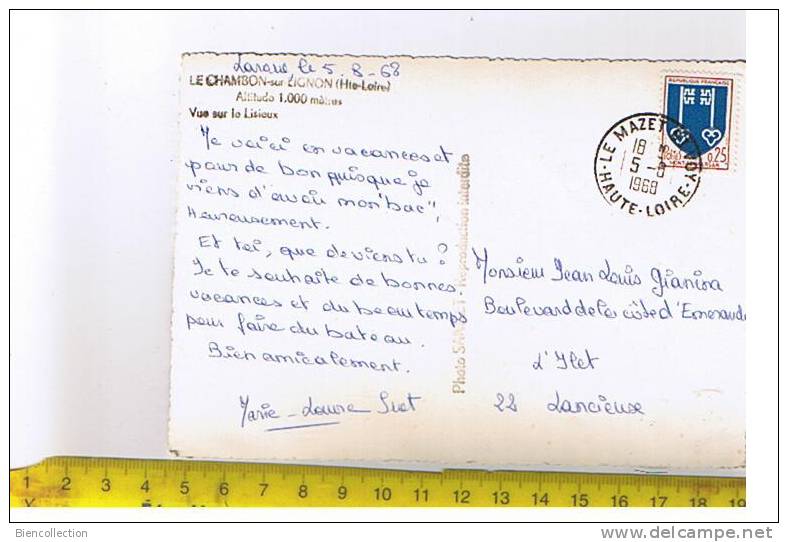 le 5-8-68
LE CHAMBON-sur-LIGNON (Hte-Loire)
Altitude 1.000 mètres
Vue sur le Lisieux
Me voici en vacances et
pour de bon puisque je
viens d'avoir mon "bac",
Heureusement.
Et toi, que deviens tu?
Je te souhaite de bonnes
vacances et du beau temps
pour faire du bateau.
Bien amicalement.
Marie-Laure
Photo Reproduction interdite
REPUBLIQUE FRANÇAISE
0,25
LE MAZET ST VOY
18
5-8
1968
HAUTE-LOIRE
Monsieur Jean Louis Gianina
Boulevard de la côte d'Emeraude
L'Ilet
22 Lancieux
1 2 3 4 5 6 7 8 9 10 11 12 13 14 15 16 17 18 19
Biencollection
delcampe.net